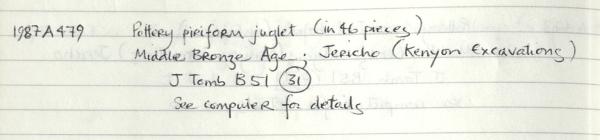 1987A479 Pottery piriform juglet (in 46 pieces)
Middle Bronze Age ; Jericho (Kenyon Excavations)
J Tomb B51 (31)
See computer for details